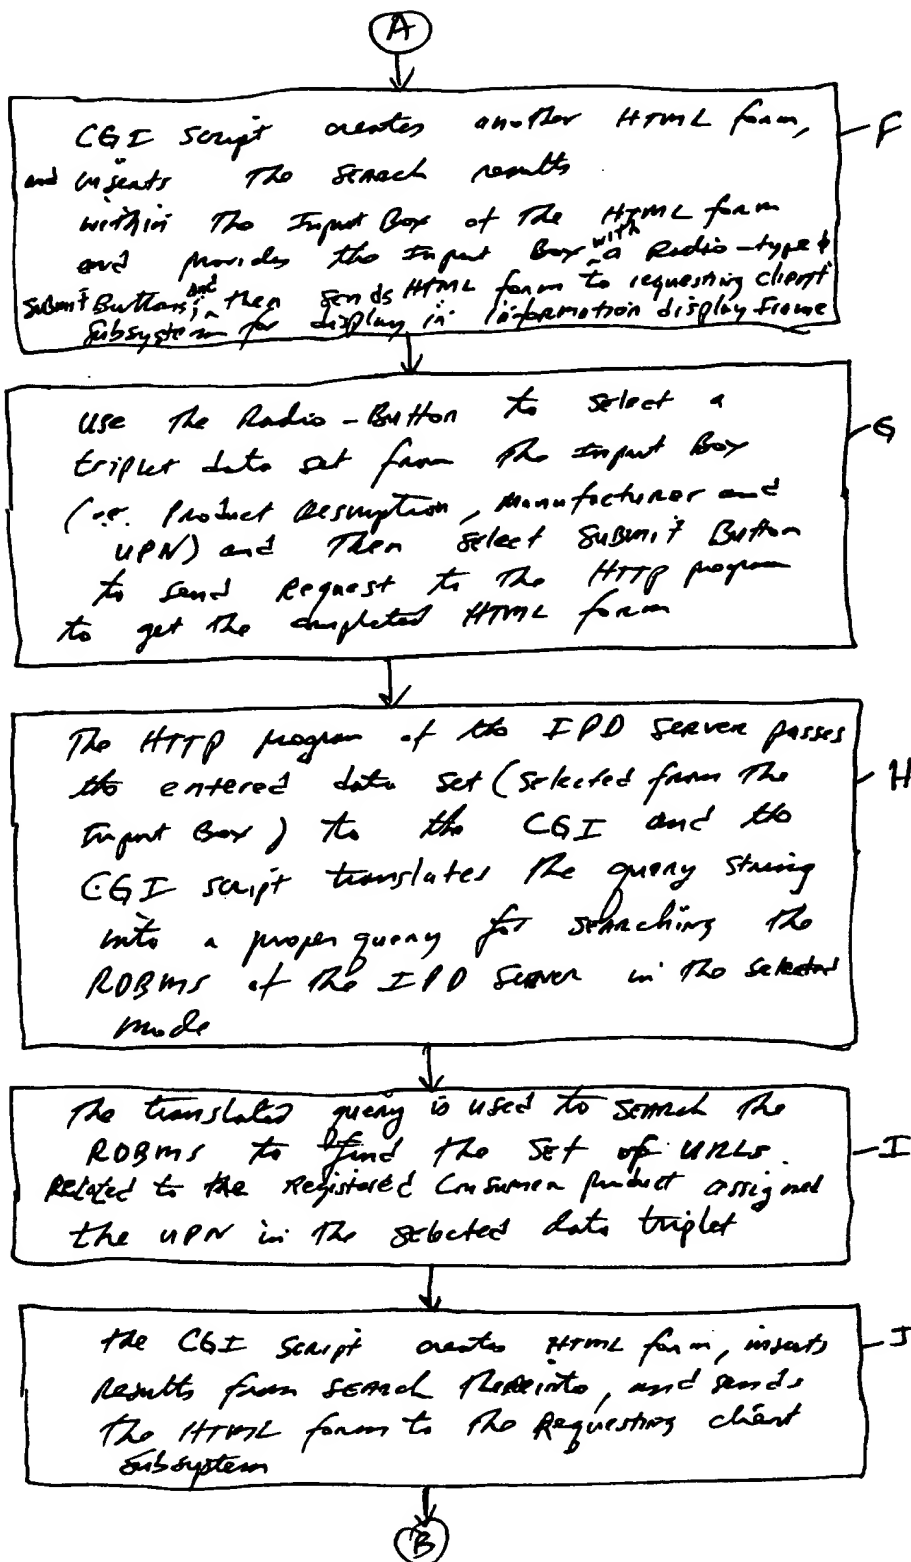 A
CGI Script creates another HTML form, F
and inserts the search results
within the Input Box of the HTML form
and provides the Input Box with a Radio-type &
Submit Buttons; and then sends HTML form to requesting client
subsystem for display in information display frame
Use the Radio-Button to select a G
triplet data set from the Input Box
(i.e. Product Description, Manufacturer and
UPN) and then select Submit Button
to send Request to the HTTP program
to get the completed HTML form
The HTTP program of the IPD Server passes
the entered data set (selected from the H
Input Box) to the CGI and the
CGI script translates the query string
into a proper query for searching the
RDBMS of the IPD Server in the selected
mode
The translated query is used to search the
RDBMS to find the set of URLs I
Related to the Registered Consumer product assigned
the UPN in the selected data triplet
the CGI script creates HTML form, inserts J
results from search thereinto, and sends
the HTML form to the Requesting client
subsystem
B